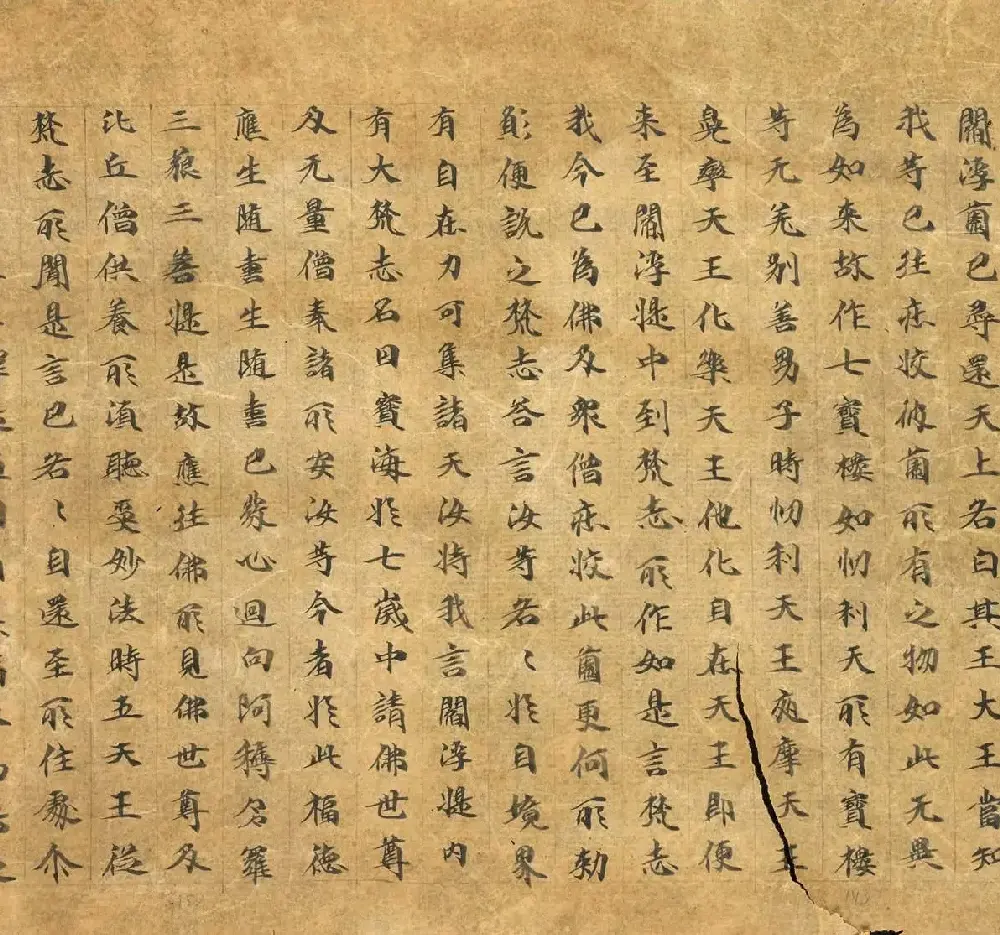 閻浮薗已尋還天上各白其王大王當知
我等已往莊挍彼薗所有之物如此无異
為如来故作七寳樓如忉利天所有寳樓
等无差別善男子時忉利天王夜摩天王
兜率天王化樂天王他化自在天王即便
来至閻浮提中到梵志所作如是言梵志
我今已為佛及衆僧莊挍此薗更何所勑
願便說之梵志荅言汝等各〻於自境界
有自在力可集諸天汝持我言閻浮提內
有大梵志名曰寳海於七歲中請佛世尊
及无量僧奉諸所安汝等今者於此福德
應生随喜生随喜已發心迴向阿耨多羅
三藐三菩提是故應往佛所見佛世尊及
比丘僧供養所湏聽受妙法時五天王從
梵志所聞是言已各〻自還至所住處尒